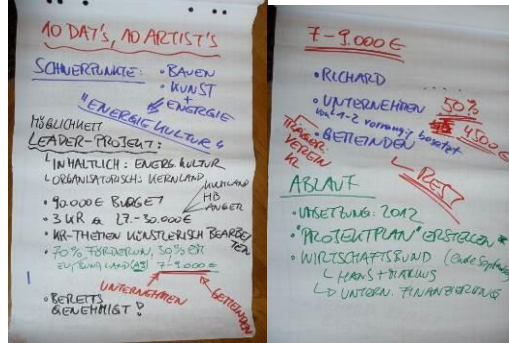 10 DAY'S, 10 ARTIST'S
SCHWERPUNKTE: • BAUEN
• KUNST
+
ENERGIE
"ENERGIE KULTUR"
MÖGLICHKEIT
LEADER-PROJEKT:
INHALTLICH: ENERG. KULTUR
ORGANISATORISCH: KERNLAND
• 90.000€ BUDGET
HB
ANGER
• 3 KR à 27.-30.000€
• KR-THEMEN KÜNSTLERISCH BEARBEITEN
• 70% FÖRDERUNG, 30%
LAND (A9) 7-9.000€
UNTERNEHMEN
GEMEINDEN
• BEREITS
GENEHMIGT!
7-9.000€
• RICHARD
• UNTERNEHMEN 50%
1-2 vorrangig besetzt
4500€
• GEMEINDEN
TRÄGER
VEREIN
KR
REST
ABLAUF
• UMSETZUNG: 2012
• "PROJEKTPLAN" ERSTELLEN *
• WIRTSCHAFTSBUND (Ende September)
HANS + MARKUS
UNTERN. FINANZIERUNG